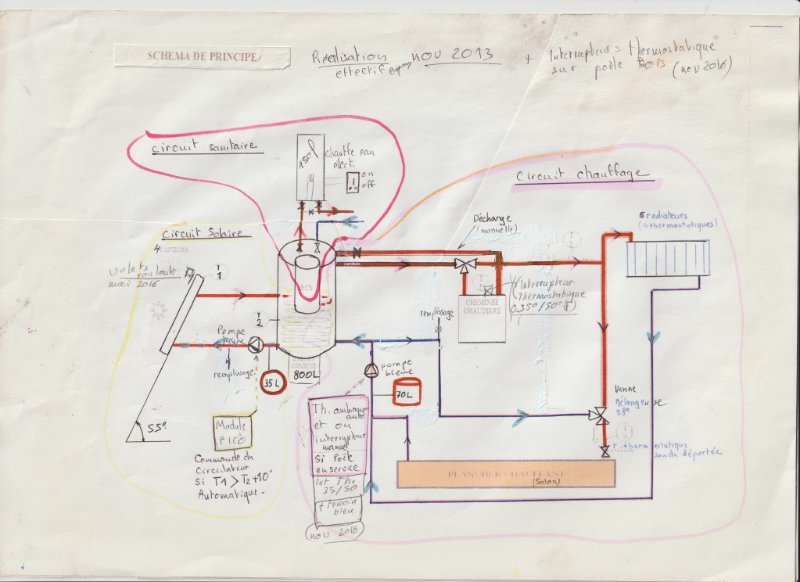 SCHEMA DE PRINCIPE
Réalisation nov 2013
effectife
+ Interrupteurs thermostatique
sur poêle Bois (nov 2016)
Circuit sanitaire
150 l
chauffe eau
elect.
on
off
Circuit chauffage
Circuit Solaire
4 CAPTEURS
volets
roulants
mai 2016
T
1
T
2
ECS
Décharge
(manuelle)
6 radiateurs
(4 thermostatiques)
CHEMINEE
CHAUDIERE
(Interrupteur
thermostatique
035°/50°)
remplissage
Pompe
remplissage
35 L
800L
pompe
bleue
70L
Vanne
mélangeuse
28°
thermostatique
sonde déportée
55°
Module
PICO
Commande du
Circulateur
Si T1 > T2 +10°
Automatique.
Th. ambiance
auto
et ou
interrupteur
manuel
Si Poêle
en service
35/50
+ témoin
bleu
nov 2016
PLANCHER CHAUFFANT
(Salon)